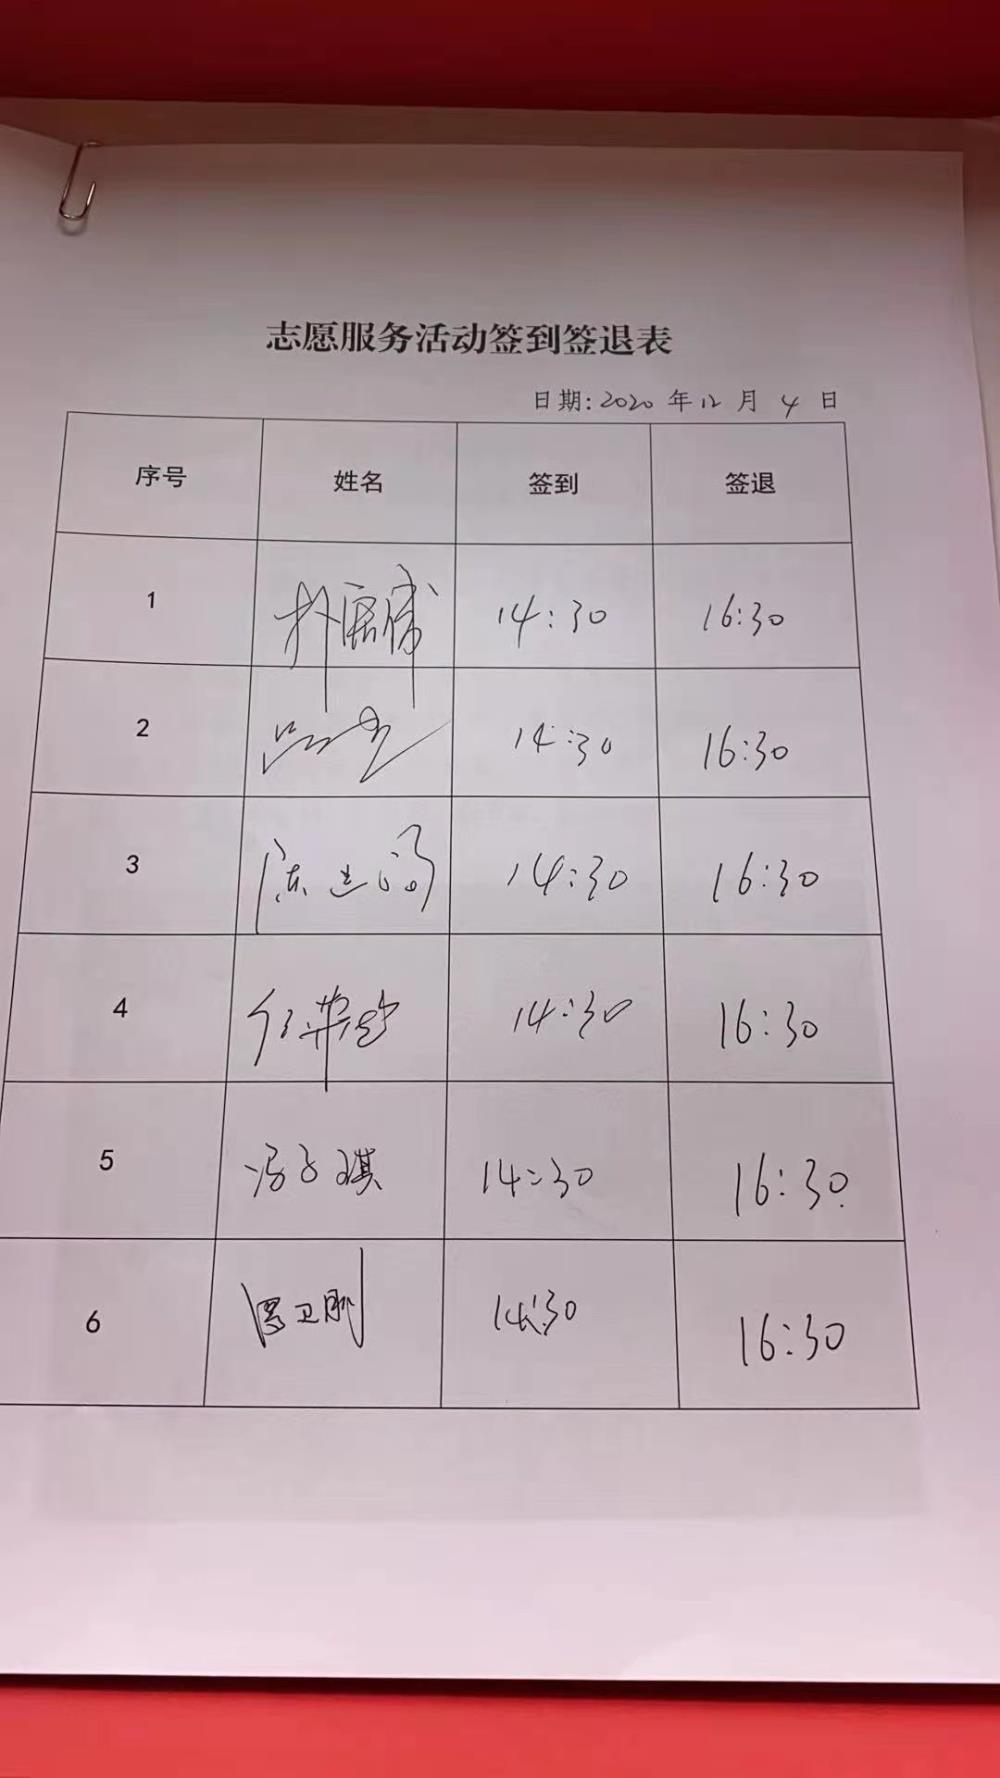 志愿服务活动签到签退表
日期:2020年12月4日
序号 姓名 签到 签退
1 14:30 16:30
2 14:30 16:30
3 陈 14:30 16:30
4 14:30 16:30
5 冯子琪 14:30 16:30
6 罗卫刚 14:30 16:30